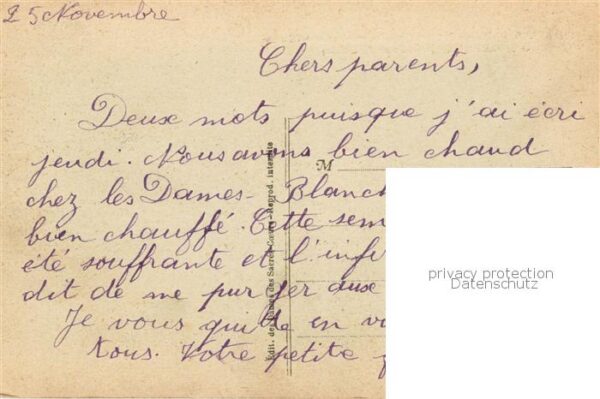 25 Novembre
Chers parents,
Deux mots puisque j'ai écri
jeudi. Nous avons bien chaud
M
chez les Dames-Blanch
bien chauffé. Cette sem
été souffrante et l'infi
dit de me purger aux
Je vous quitte en vo
tous. Votre petite
Edit. des Dames des Sacrés-Cœurs - Reprod. interdite
privacy protection
Datenschutz